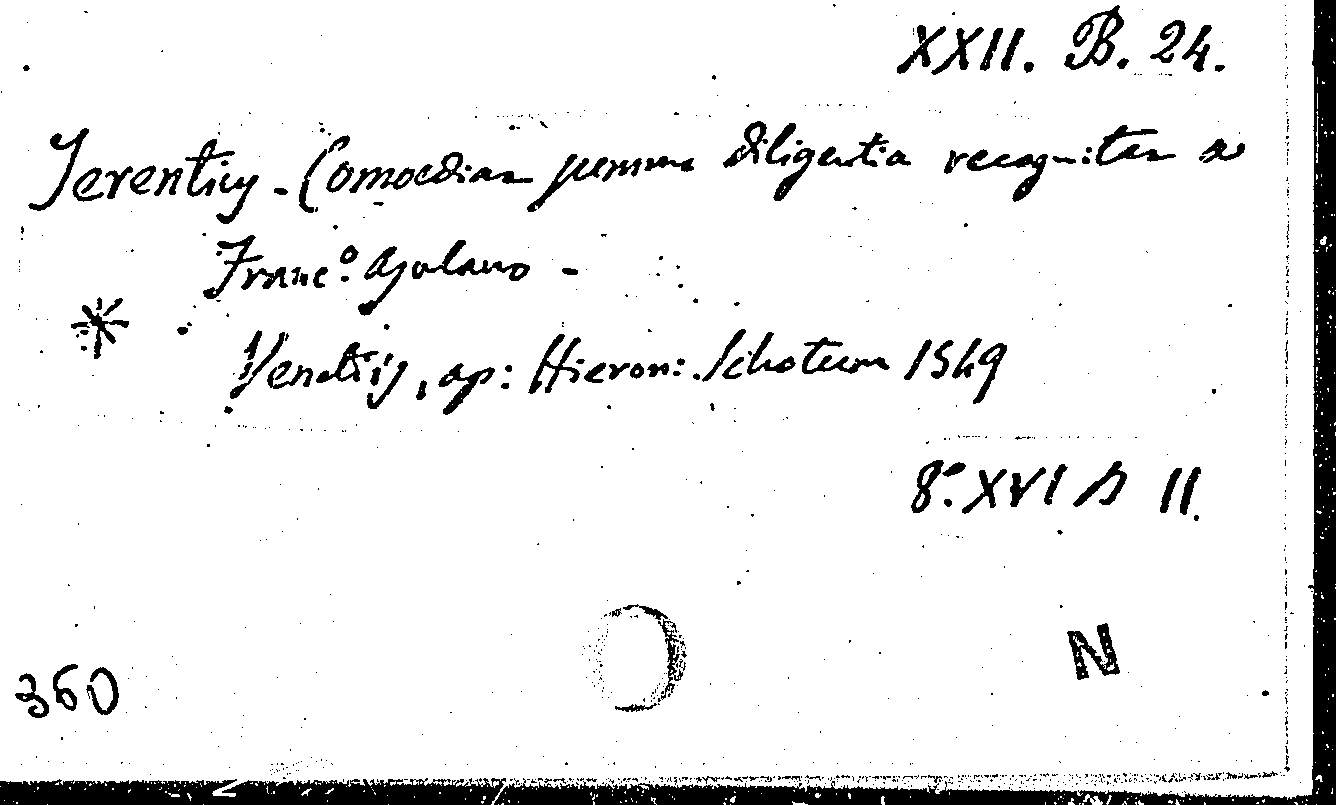 XXII. B. 24.
Terentius - Comoediae summa diligentia recognitae a
Franc.º Asulano -
*
Venetiis, ap: Hieron: Schotum 1549
8.º XVI B II.
N
360